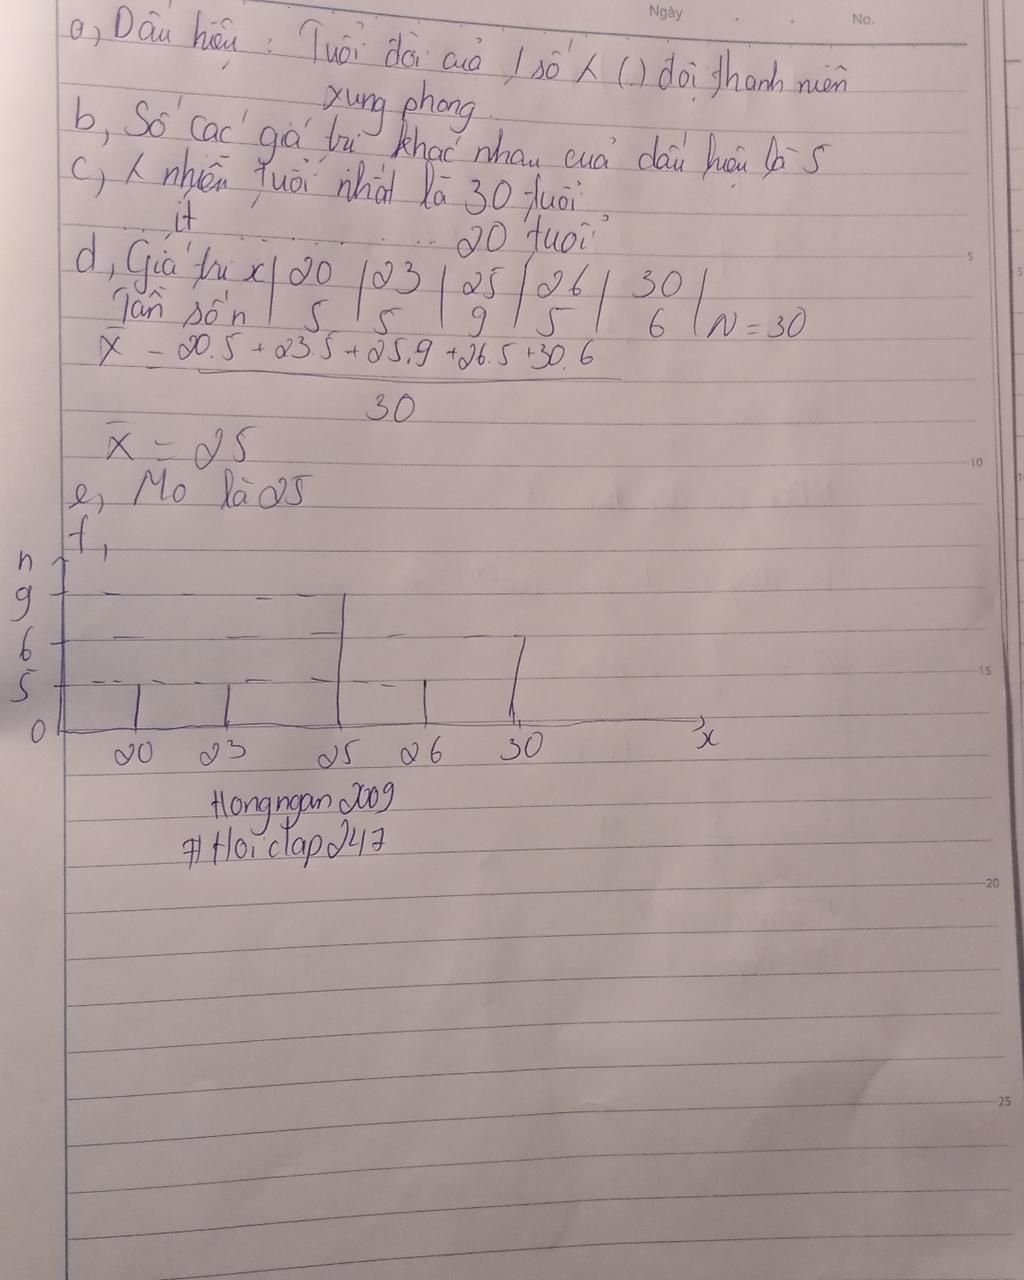 Ngày . . No.
a, Dấu hiệu : Tuổi đời của 1 số λ (.) đội thanh niên
xung phong.
b, Số các giá trị khác nhau của dấu hiệu là 5
c, λ nhiều tuổi nhất là 30 tuổi
ít ........... 20 tuổi
5
d, Giá trị x | 20 | 23 | 25 | 26 | 30 |
Tần số n | 5 | 5 | 9 | 5 | 6 | N = 30
X̄ = 20.5 + 23.5 + 25.9 + 26.5 + 30.6
30
X̄ = 25
10
e, Mo là 25
f,
n
9
6
5
15
0
20 23 25 26 30 x
Hongngan2009
#Hoidap247
20
25